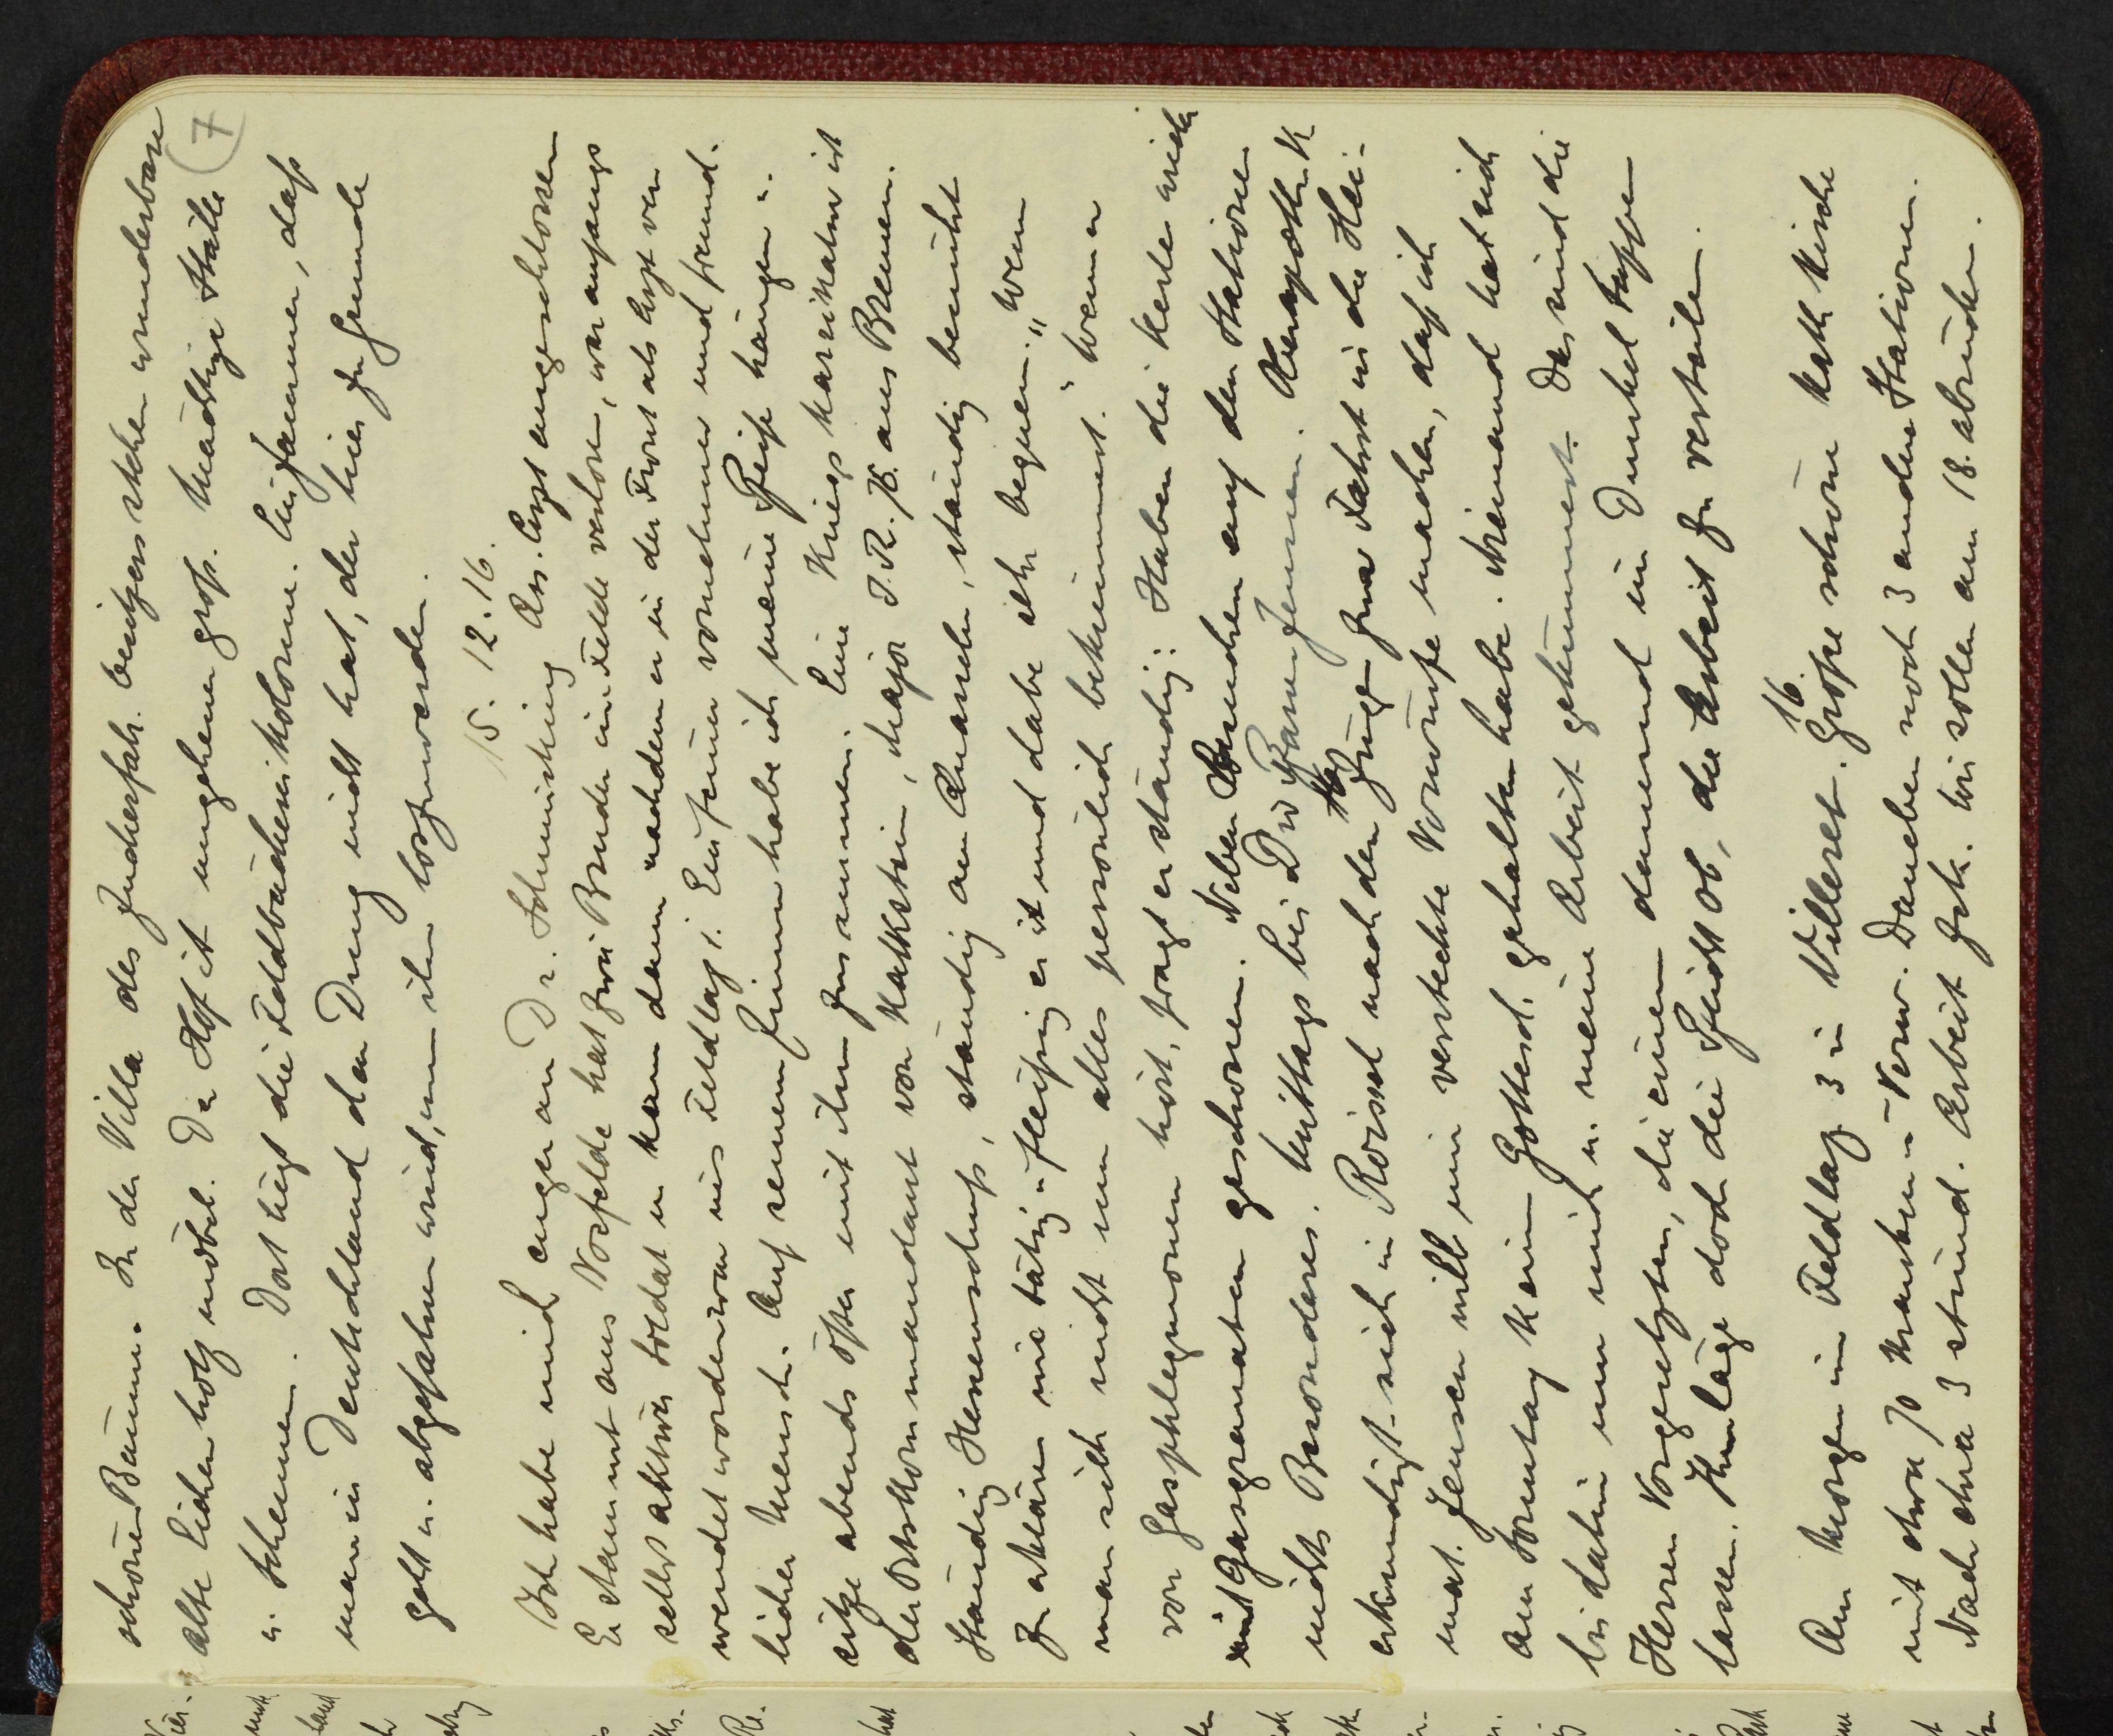 schönen Bäumen. In der Villa des Zuckerfab. besitzers stehen wunderbare
alte Eichenholzmöbel. Der Hof ist ungeheuer groß. Mächtige Ställe (7)
u. Scheunen. Dort liegt die Feldbäckereikolonne. Ein Jammer, daß
man in Deutschland den Dung nicht hat, der hier zu Grunde
geht u. abgefahren wird, um ihn loszuwerden.
15. 12. 16.
Ich habe mich enger an Dr. Ass. Arzt angeschlossen
Er stammt aus Vorsfelde hat zwei Brüder im Felde verloren, war anfangs
selbst aktiver Soldat u. kam dann nachdem er in der Front als Arzt ver
wendet worden war ins Feldlaz. Ein feiner vornehmer und freund-
licher Mensch. Auf seinem Zimmer habe ich meine Geige hängen u.
sitze abends öfter mit ihm zusammen. Eine Kriegskarikatur ist
der Ortskommandant von Kalkstein, Major I.R. 75. aus Bremen.
Ständig Hexenschuß, ständig am Quasseln, ständig bemüht
zu erklären wie tätig u. fleißig er ist und dabei sehr bequem. „Wenn
man sich nicht um alles persönlich bekümmert." Wenn er
von Gasphlegmonen hört, fragt er ständig: Haben die Kerle sich
mit Gasgranaten geschossen. Neben Besuchen auf den Stationen
nichts Besonderes. Mittags bei Div Pfarrer Jensen.
erkundigt sich in Roisel nach den Zügen zwecks Fahrt in die Hei-
mat. Jensen will mir versteckte Vorwürfe machen, daß ich
am Sonntag keinen Gottesd. gehalten habe. Niemand hat sich
bis dahin um mich u. meine Arbeit gekümmert. Das sind die
Herren Vorgesetzten, die einen dauernd im Dunkel tappen
lassen. Ihm läge doch die Pflicht ob, die Arbeit zu verteilen.
16.
Am Morgen im Feldlaz. 3 in Villeret. Große schöne kath. Kirche
mit etwa 70 Kranken u. Verw. Daneben noch 3 andere Stationen.
Nach etwa 3 stünd. Arbeit zurück. Wir sollen am 18. abrücken.